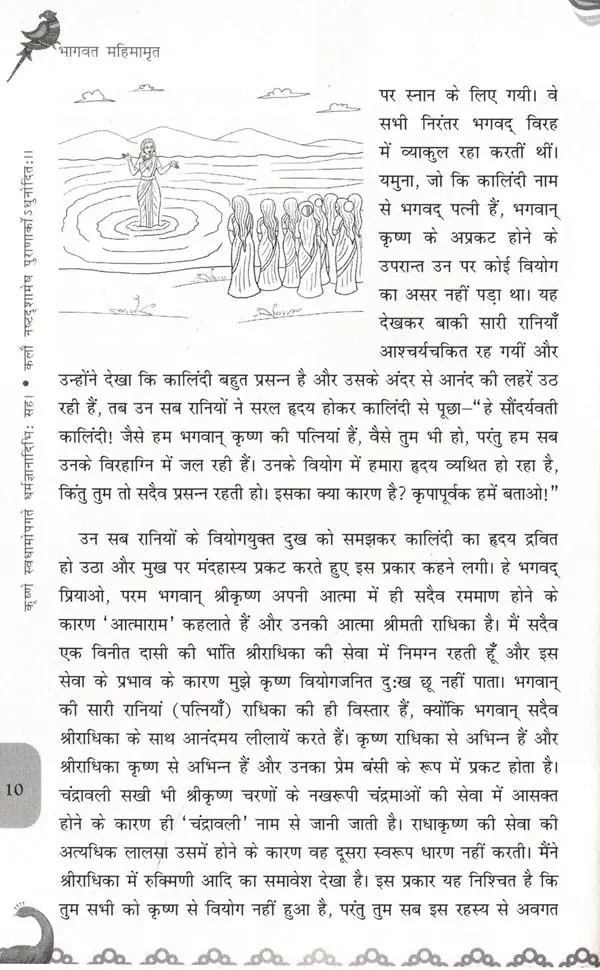 भागवत महिमामृत
पर स्नान के लिए गयी। वे
सभी निरंतर भगवद् विरह
में व्याकुल रहा करतीं थीं।
यमुना, जो कि कालिंदी नाम
से भगवद् पत्नी हैं, भगवान्
कृष्ण के अप्रकट होने के
उपरान्त उन पर कोई वियोग
का असर नहीं पड़ा था। यह
देखकर बाकी सारी रानियाँ
आश्चर्यचकित रह गयीं और
उन्होंने देखा कि कालिंदी बहुत प्रसन्न है और उसके अंदर से आनंद की लहरें उठ
रही हैं, तब उन सब रानियों ने सरल हृदय होकर कालिंदी से पूछा–“हे सौंदर्यवती
कालिंदी! जैसे हम भगवान् कृष्ण की पत्नियां हैं, वैसे तुम भी हो, परंतु हम सब
उनके विरहाग्नि में जल रही हैं। उनके वियोग में हमारा हृदय व्यथित हो रहा है,
किंतु तुम तो सदैव प्रसन्न रहती हो। इसका क्या कारण है? कृपापूर्वक हमें बताओ!”
उन सब रानियों के वियोगयुक्त दुख को समझकर कालिंदी का हृदय द्रवित
हो उठा और मुख पर मंदहास्य प्रकट करते हुए इस प्रकार कहने लगी। हे भगवद्
प्रियाओ, परम भगवान् श्रीकृष्ण अपनी आत्मा में ही सदैव रममाण होने के
कारण ‘आत्माराम’ कहलाते हैं और उनकी आत्मा श्रीमती राधिका है। मैं सदैव
एक विनीत दासी की भांति श्रीराधिका की सेवा में निमग्न रहती हूँ और इस
सेवा के प्रभाव के कारण मुझे कृष्ण वियोगजनित दुःख छू नहीं पाता। भगवान्
की सारी रानियां (पत्नियाँ) राधिका की ही विस्तार हैं, क्योंकि भगवान् सदैव
श्रीराधिका के साथ आनंदमय लीलायें करते हैं। कृष्ण राधिका से अभिन्न हैं और
श्रीराधिका कृष्ण से अभिन्न हैं और उनका प्रेम बंसी के रूप में प्रकट होता है।
चंद्रावली सखी भी श्रीकृष्ण चरणों के नखरूपी चंद्रमाओं की सेवा में आसक्त
होने के कारण ही ‘चंद्रावली’ नाम से जानी जाती है। राधाकृष्ण की सेवा की
अत्यधिक लालसा उसमें होने के कारण वह दूसरा स्वरूप धारण नहीं करती। मैंने
श्रीराधिका में रुक्मिणी आदि का समावेश देखा है। इस प्रकार यह निश्चित है कि
तुम सभी को कृष्ण से वियोग नहीं हुआ है, परंतु तुम सब इस रहस्य से अवगत
कृष्णे स्वधामोपगते धर्मज्ञानादिभिः सह। • कलौ नष्टदृशामेष पुराणार्कोऽधुनोदितः।।
10